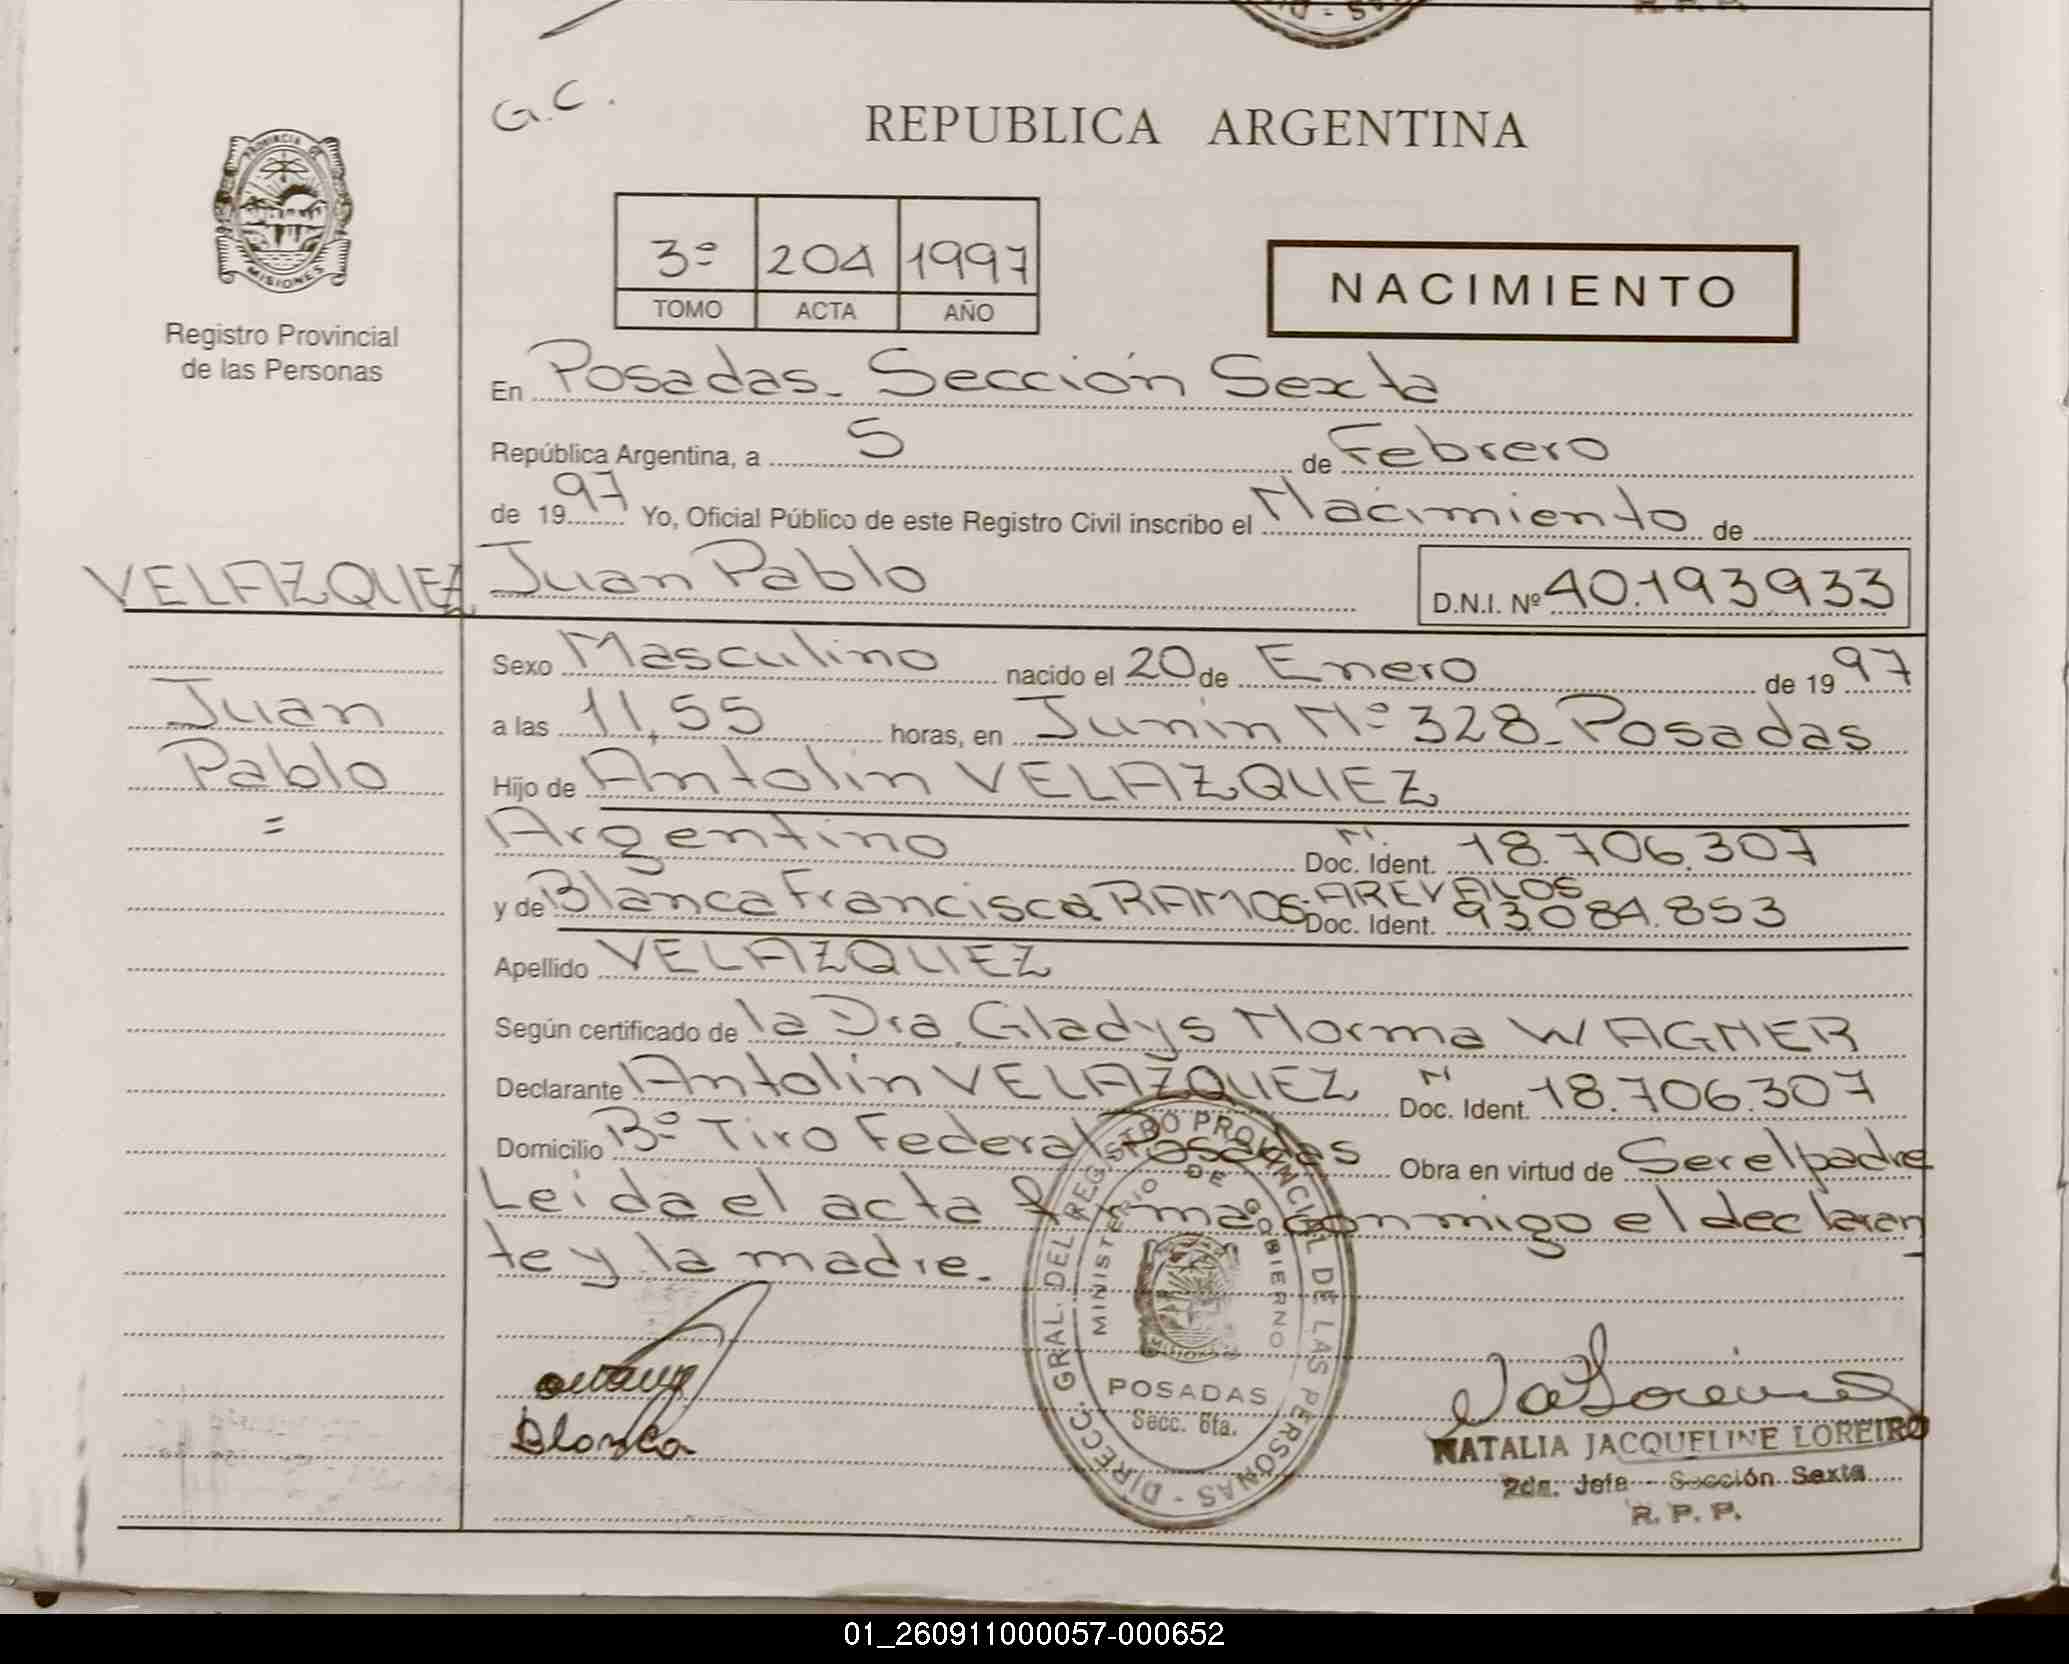 G.C.
REPUBLICA ARGENTINA
PROVINCIA DE
MISIONES
Registro Provincial
de las Personas
3º 204 1997
TOMO ACTA AÑO
NACIMIENTO
En Posadas. Sección Sexta
República Argentina, a 5 de Febrero
de 1997 Yo, Oficial Público de este Registro Civil inscribo el Nacimiento de
VELAZQUEZ Juan Pablo D.N.I. Nº 40.193933
Sexo Masculino nacido el 20 de Enero de 1997
Juan
a las 11,55 horas, en Junin Nº 328_Posadas
Pablo
=
Hijo de Antolin VELAZQUEZ
Argentino Doc. Ident. 18.706.307
y de Blanca Francisca RAMOS AREVALOS Doc. Ident. 93.084.853
Apellido VELAZQUEZ
Según certificado de la Dra. Gladys Norma WAGNER
Declarante Antolin VELAZQUEZ Doc. Ident. 18.706.307
Domicilio Bº Tiro Federal Posadas Obra en virtud de Ser el padre
Leida el acta firma conmigo el declaran
te y la madre.
DIRECC. GRAL. DEL REGISTRO PROVINCIAL DE LAS PERSONAS -
MINISTERIO DE GOBIERNO
POSADAS
Secc. 6ta.
Blanca
NATALIA JACQUELINE LOREIRO
2da. Jefe Sección Sexta
R. P. P.
01_260911000057-000652